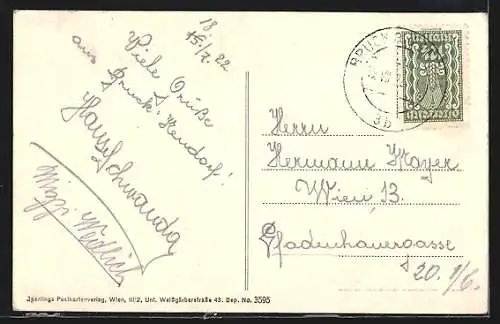 18
15./7. 22
Viele Grüße
aus Bruck-Neudorf!
Hansl Schwanda
Mizzi
BRUCK
3b
Herrn
Hermann Mayer
Wien 13.
Pfadenhauergasse
20. 1/6.
Iperlings Postkartenverlag, Wien, III/2, Unt. Weißgärberstraße 43. Dep. No. 3595